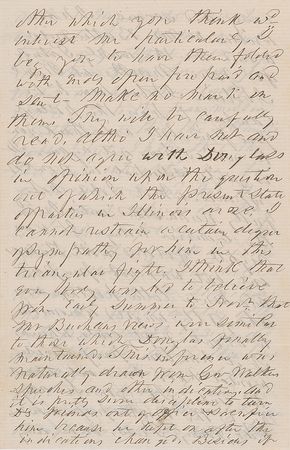 other which you think wd
interest me particularly. I
beg you to have them folded
with ends open free paid and
sent. Make no mark on
them. They will be carefully
read. altho I have not and
do not agree with Douglass
in opinion upon the question
out of which the present state
of parties in Illinois arose. I
cannot restrain a certain degree
of sympathy for him in this
triangular fight. I think that
every body was led to believe
from early summer to that
Mr Buchans views were similar
to those which Douglas finally
maintained. This inference was
naturally drawn from Gov Walkers
speeches and other indications and
it is pretty severe discipline to turn
Ds friends out of office
him because he kept on after the
indications changed. Besides if